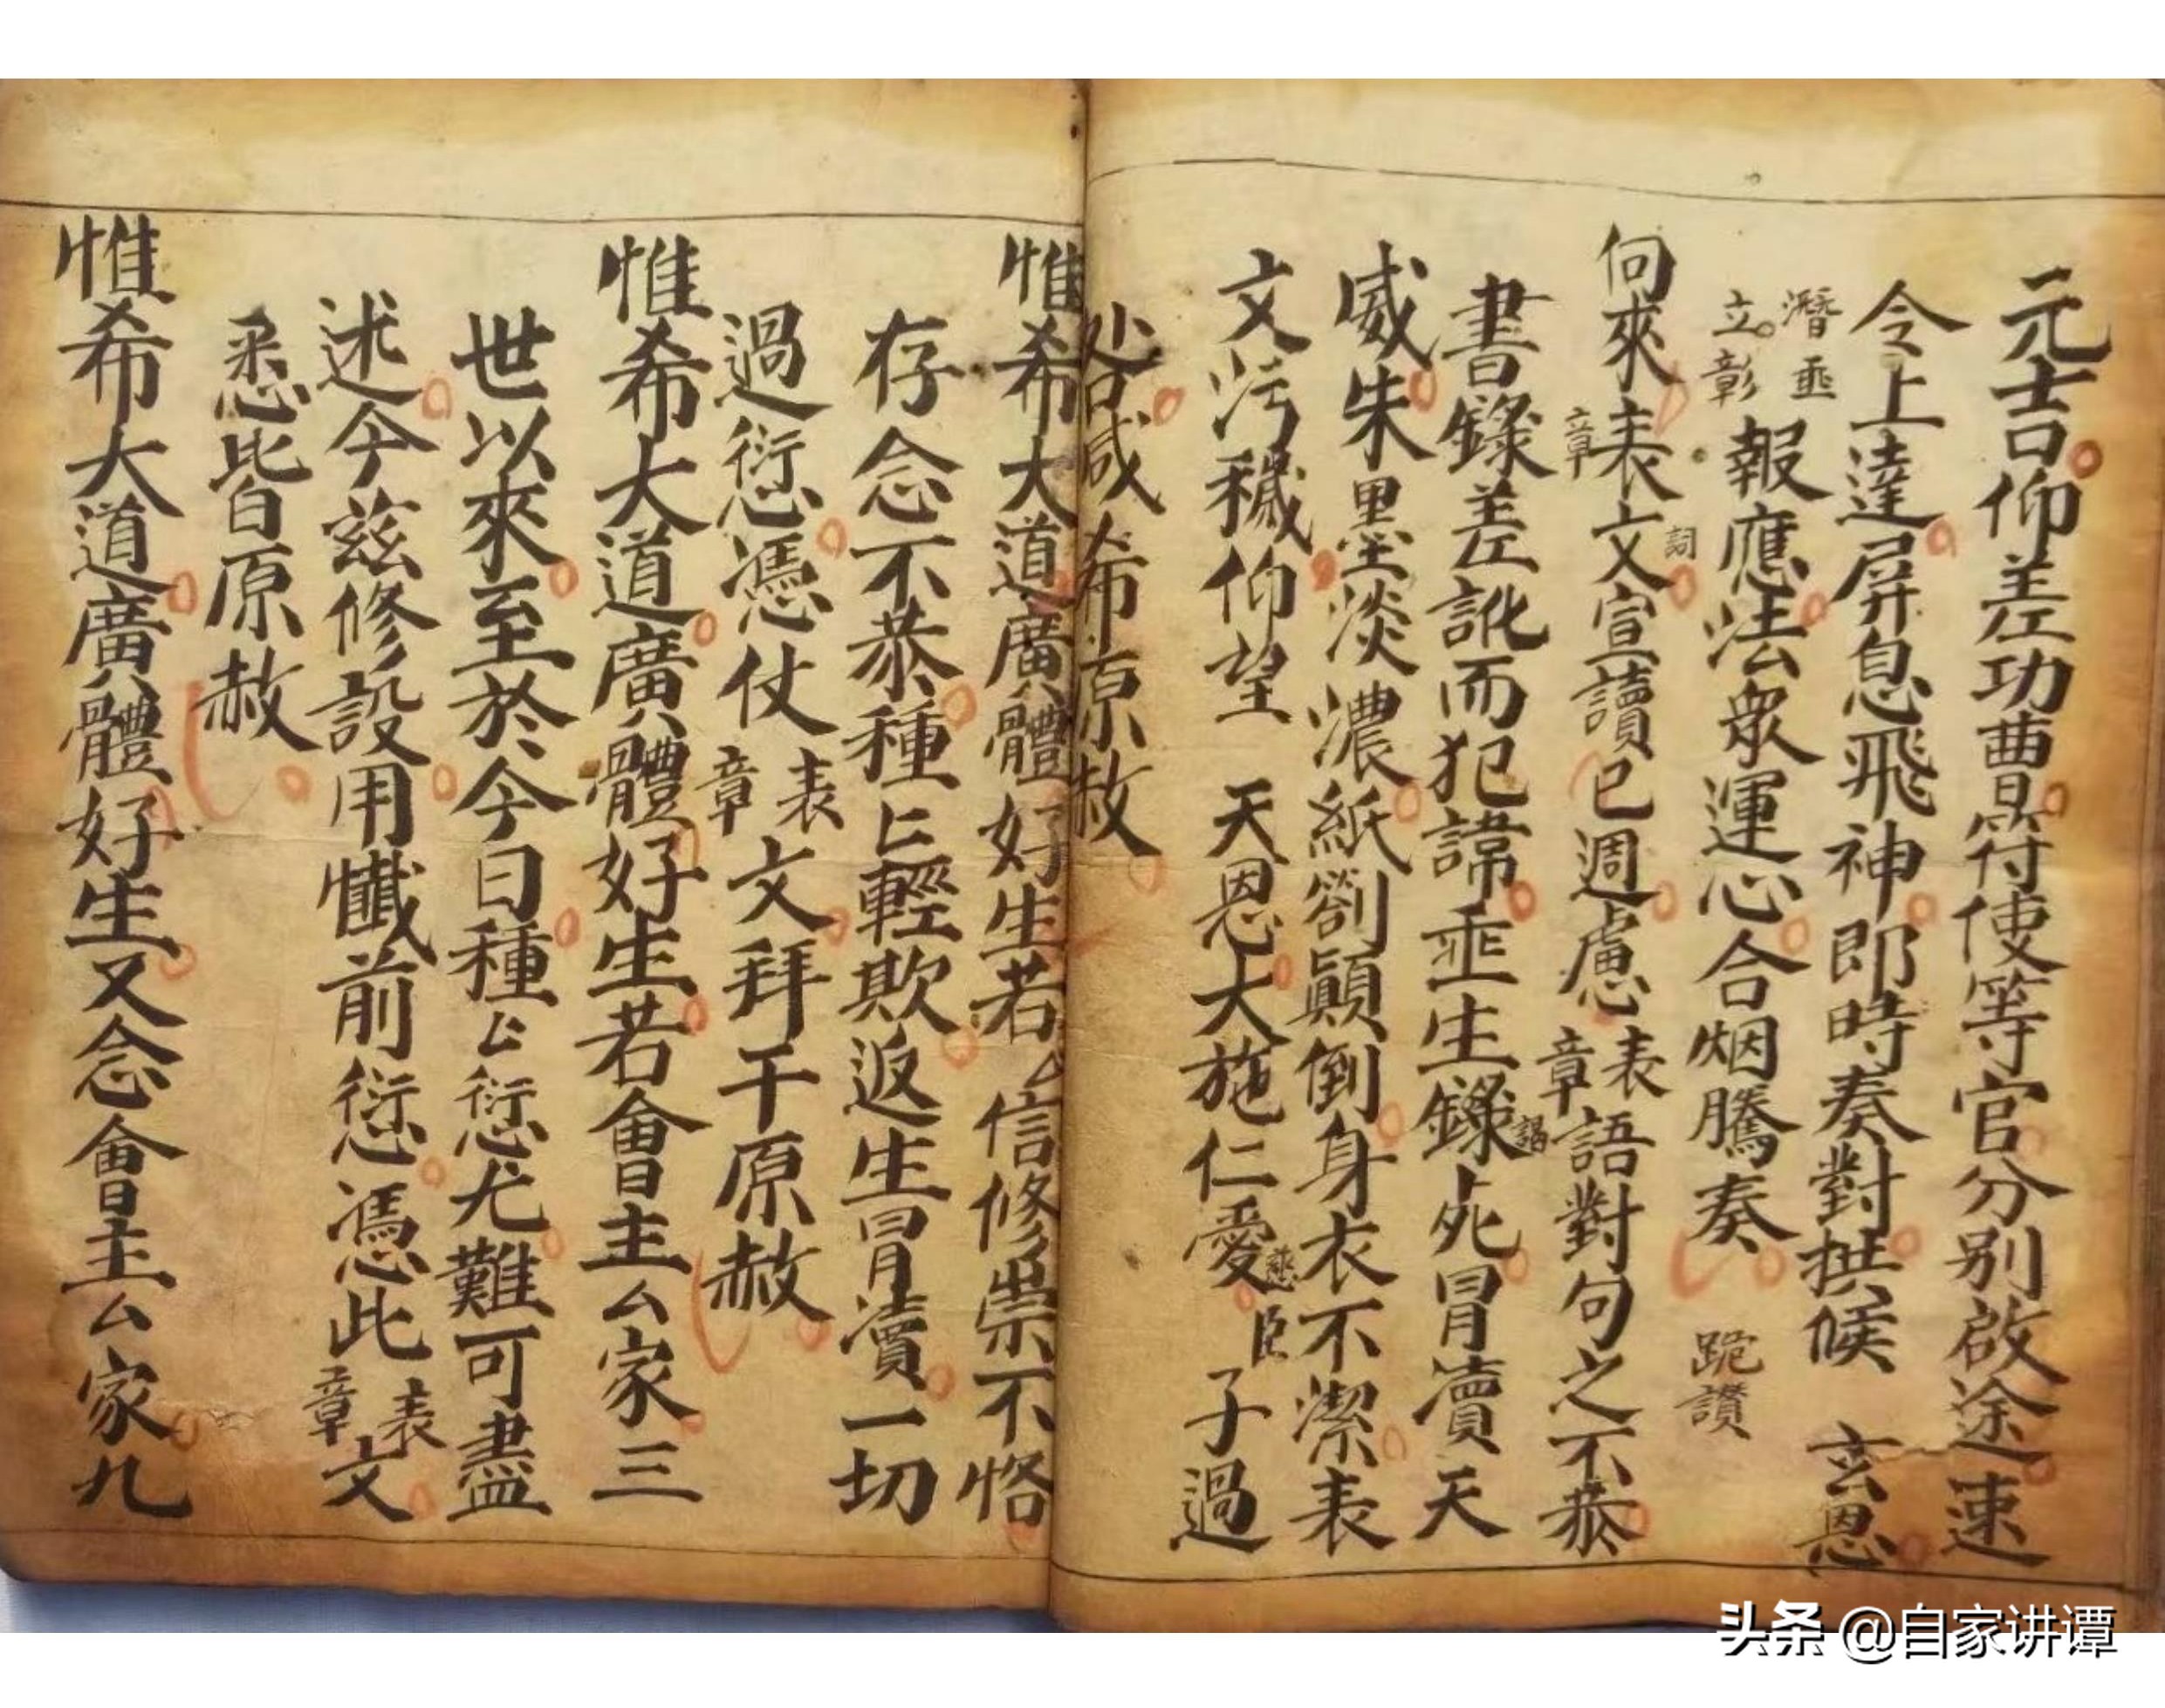 元吉仰差功曹符使等官分別啟途速
令上達屏息飛神即時奏對拱候 玄恩
潛垂
立彰
報應法衆運心合烟騰奏 跪讚
向來表章文詞宣讀已週慮表章語對句之不恭
書錄差訛而犯諱重生錄死冒瀆天
威朱墨淡濃紙劄顛倒身衣不潔表
文污穢仰望 天恩大施仁愛慈臣子過
咎咸希原赦
惟希大道廣體好生若厶信修崇不恪
存念不恭種〻輕欺返生冒瀆一切
過衍愆憑仗表章文拜干原赦
惟希大道廣體好生若會主厶家三
世以來至於今日種〻愆尤難可盡
述今茲修設用懺前愆憑此表章文
悉皆原赦
惟希大道廣體好生又念會主厶家九
头条 @自家讲谭